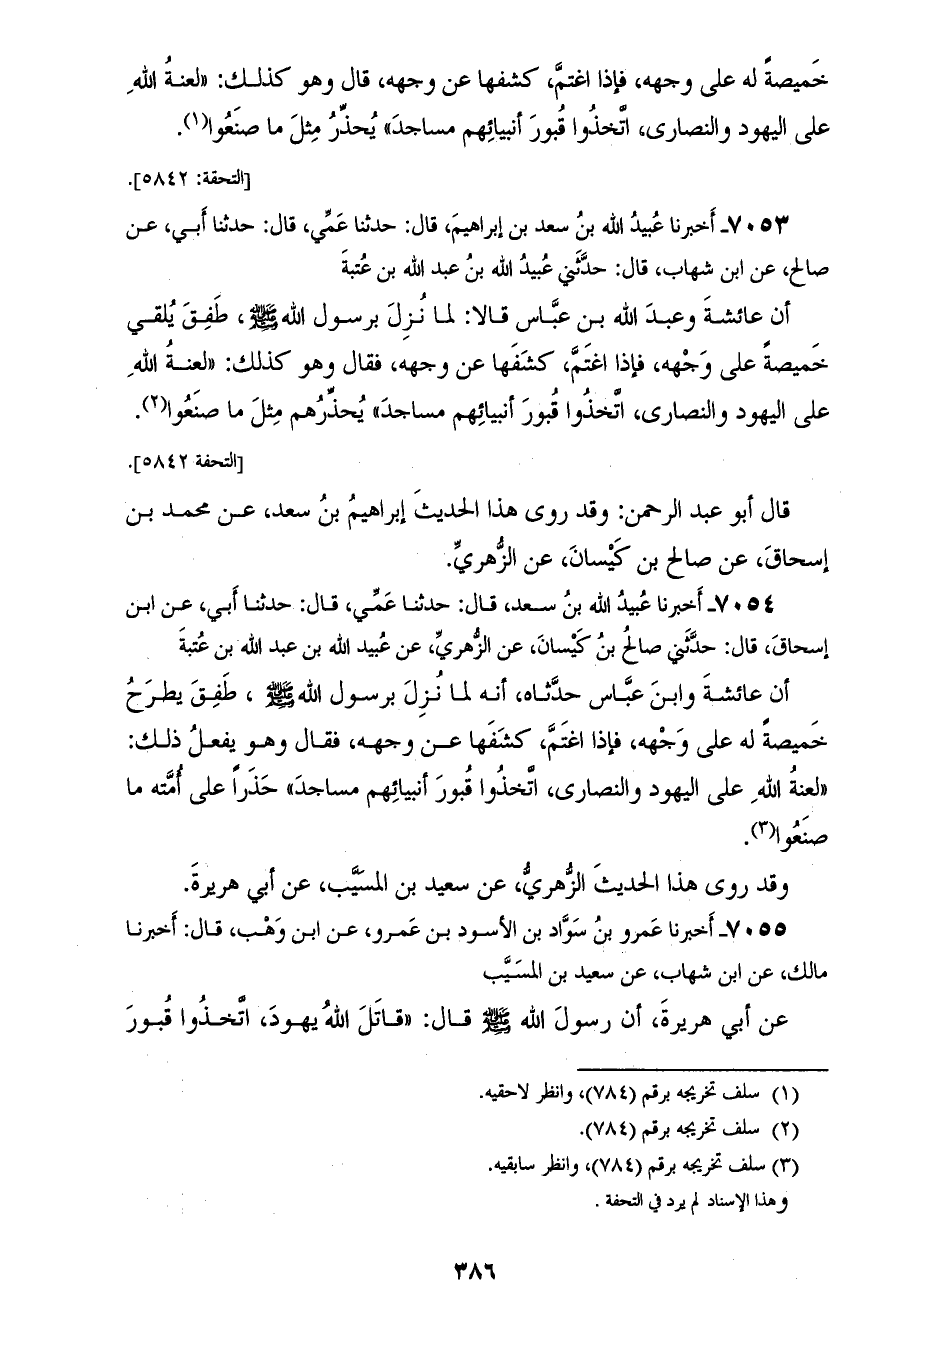 خَميصةً له على وجهه، فإذا اغتمَّ، كشفها عن وجهه، قال وهو كذلك: «لعنةُ اللهِ
على اليهود والنصارى، اتَّخذُوا قُبورَ أنبيائِهم مساجدَ» يُحذِّرُ مِثلَ ما صنَعُوا(١).
[التحفة: ٥٨٤٢].
٧٠٥٣ـ أخبرنا عُبيدُ الله بنُ سعد بن إبراهيمَ، قال: حدثنا عَمِّي، قال: حدثنا أَبي، عن
صالح، عن ابن شهاب، قال: حدَّثَني عُبيدُ الله بنُ عبد الله بن عُتبةَ
أن عائشةَ وعبدَ الله بن عبَّاس قالا: لما نُزِلَ برسول الله ﷺ، طَفِقَ يُلقي
خَميصةً على وَجْهه، فإذا اغتَمَّ، كشَفَها عن وجهه، فقال وهو كذلك: «لعنةُ اللهِ
على اليهود والنصارى، اتَّخذُوا قُبورَ أنبيائِهم مساجدَ» يُحذِّرُهم مِثلَ ما صنَعُوا(٢).
[التحفة ٥٨٤٢].
قال أبو عبد الرحمن: وقد روى هذا الحديثَ إبراهيمُ بنُ سعد، عن محمد بن
إسحاقَ، عن صالح بن كَيْسانَ، عن الزُّهريِّ.
٧٠٥٤ـ أخبرنا عُبيدُ الله بنُ سعد، قال: حدثنا عَمِّي، قال: حدثنا أَبي، عن ابن
إسحاقَ، قال: حدَّثَني صالحُ بنُ كَيْسانَ، عن الزُّهريِّ، عن عُبيد الله بن عبد الله بن عُتبةَ
أن عائشةَ وابنَ عبَّاس حدَّثاه، أنه لما نُزِلَ برسول الله ﷺ ، طَفِقَ يطرَحُ
خَميصةً له على وَجْهه، فإذا اغتَمَّ، كشَفَها عن وجهه، فقال وهو يفعلُ ذلك:
«لعنةُ اللهِ على اليهود والنصارى، اتَّخذُوا قُبورَ أنبيائِهم مساجدَ» حَذَراً على أُمَّته ما
صنَعُوا(٣).
وقد روى هذا الحديثَ الزُّهريُّ، عن سعيد بن المسَيَّب، عن أبي هريرةَ.
٧٠٥٥ـ أخبرنا عَمرو بنُ سَوَّاد بن الأسود بن عَمرو، عن ابن وَهْب، قال: أخبرنا
مالك، عن ابن شهاب، عن سعيد بن المسَيَّب
عن أبي هريرةَ، أن رسولَ الله ﷺ قال: «قاتَلَ اللهُ يهودَ، اتَّخذُوا قُبورَ
(١) سلف تخريجه برقم (٧٨٤)، وانظر لاحقيه.
(٢) سلف تخريجه برقم (٧٨٤).
(٣) سلف تخريجه برقم (٧٨٤)، وانظر سابقيه.
وهذا الإسناد لم يرد في التحفة .
٣٨٦